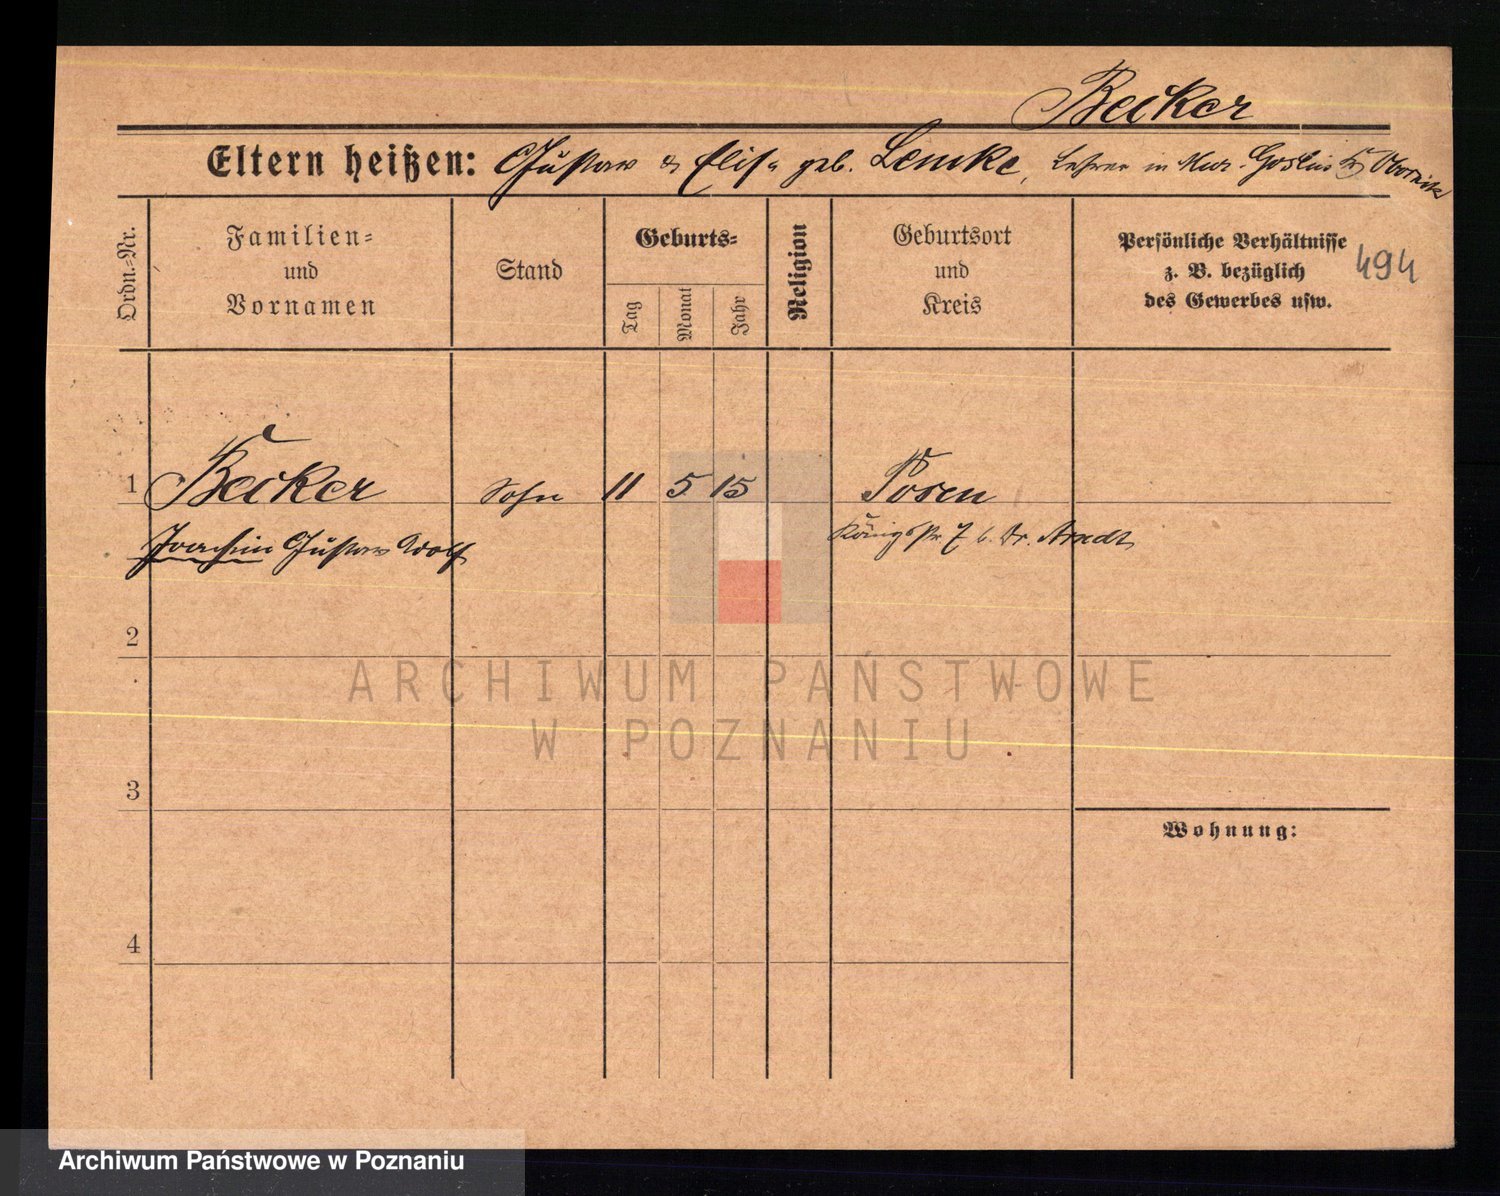 Becker
Eltern heißen: Gustav & Elise geb. Lemke, Lehrer in Mur. Goslin Kr. Obornik
Ordn.-Nr.
Familien-
und
Vornamen
Stand
Geburts-
Tag
Monat
Jahr
Religion
Geburtsort
und
Kreis
Persönliche Verhältnisse
z. B. bezüglich
des Gewerbes usw.
494
1 Becker Sohn 11 5 15 Posen
Joachim Gustav Wolf Königstr. 7 b. Dr. Arndt
2
ARCHIWUM PAŃSTWOWE
W POZNANIU
3
Wohnung:
4
Archiwum Państwowe w Poznaniu